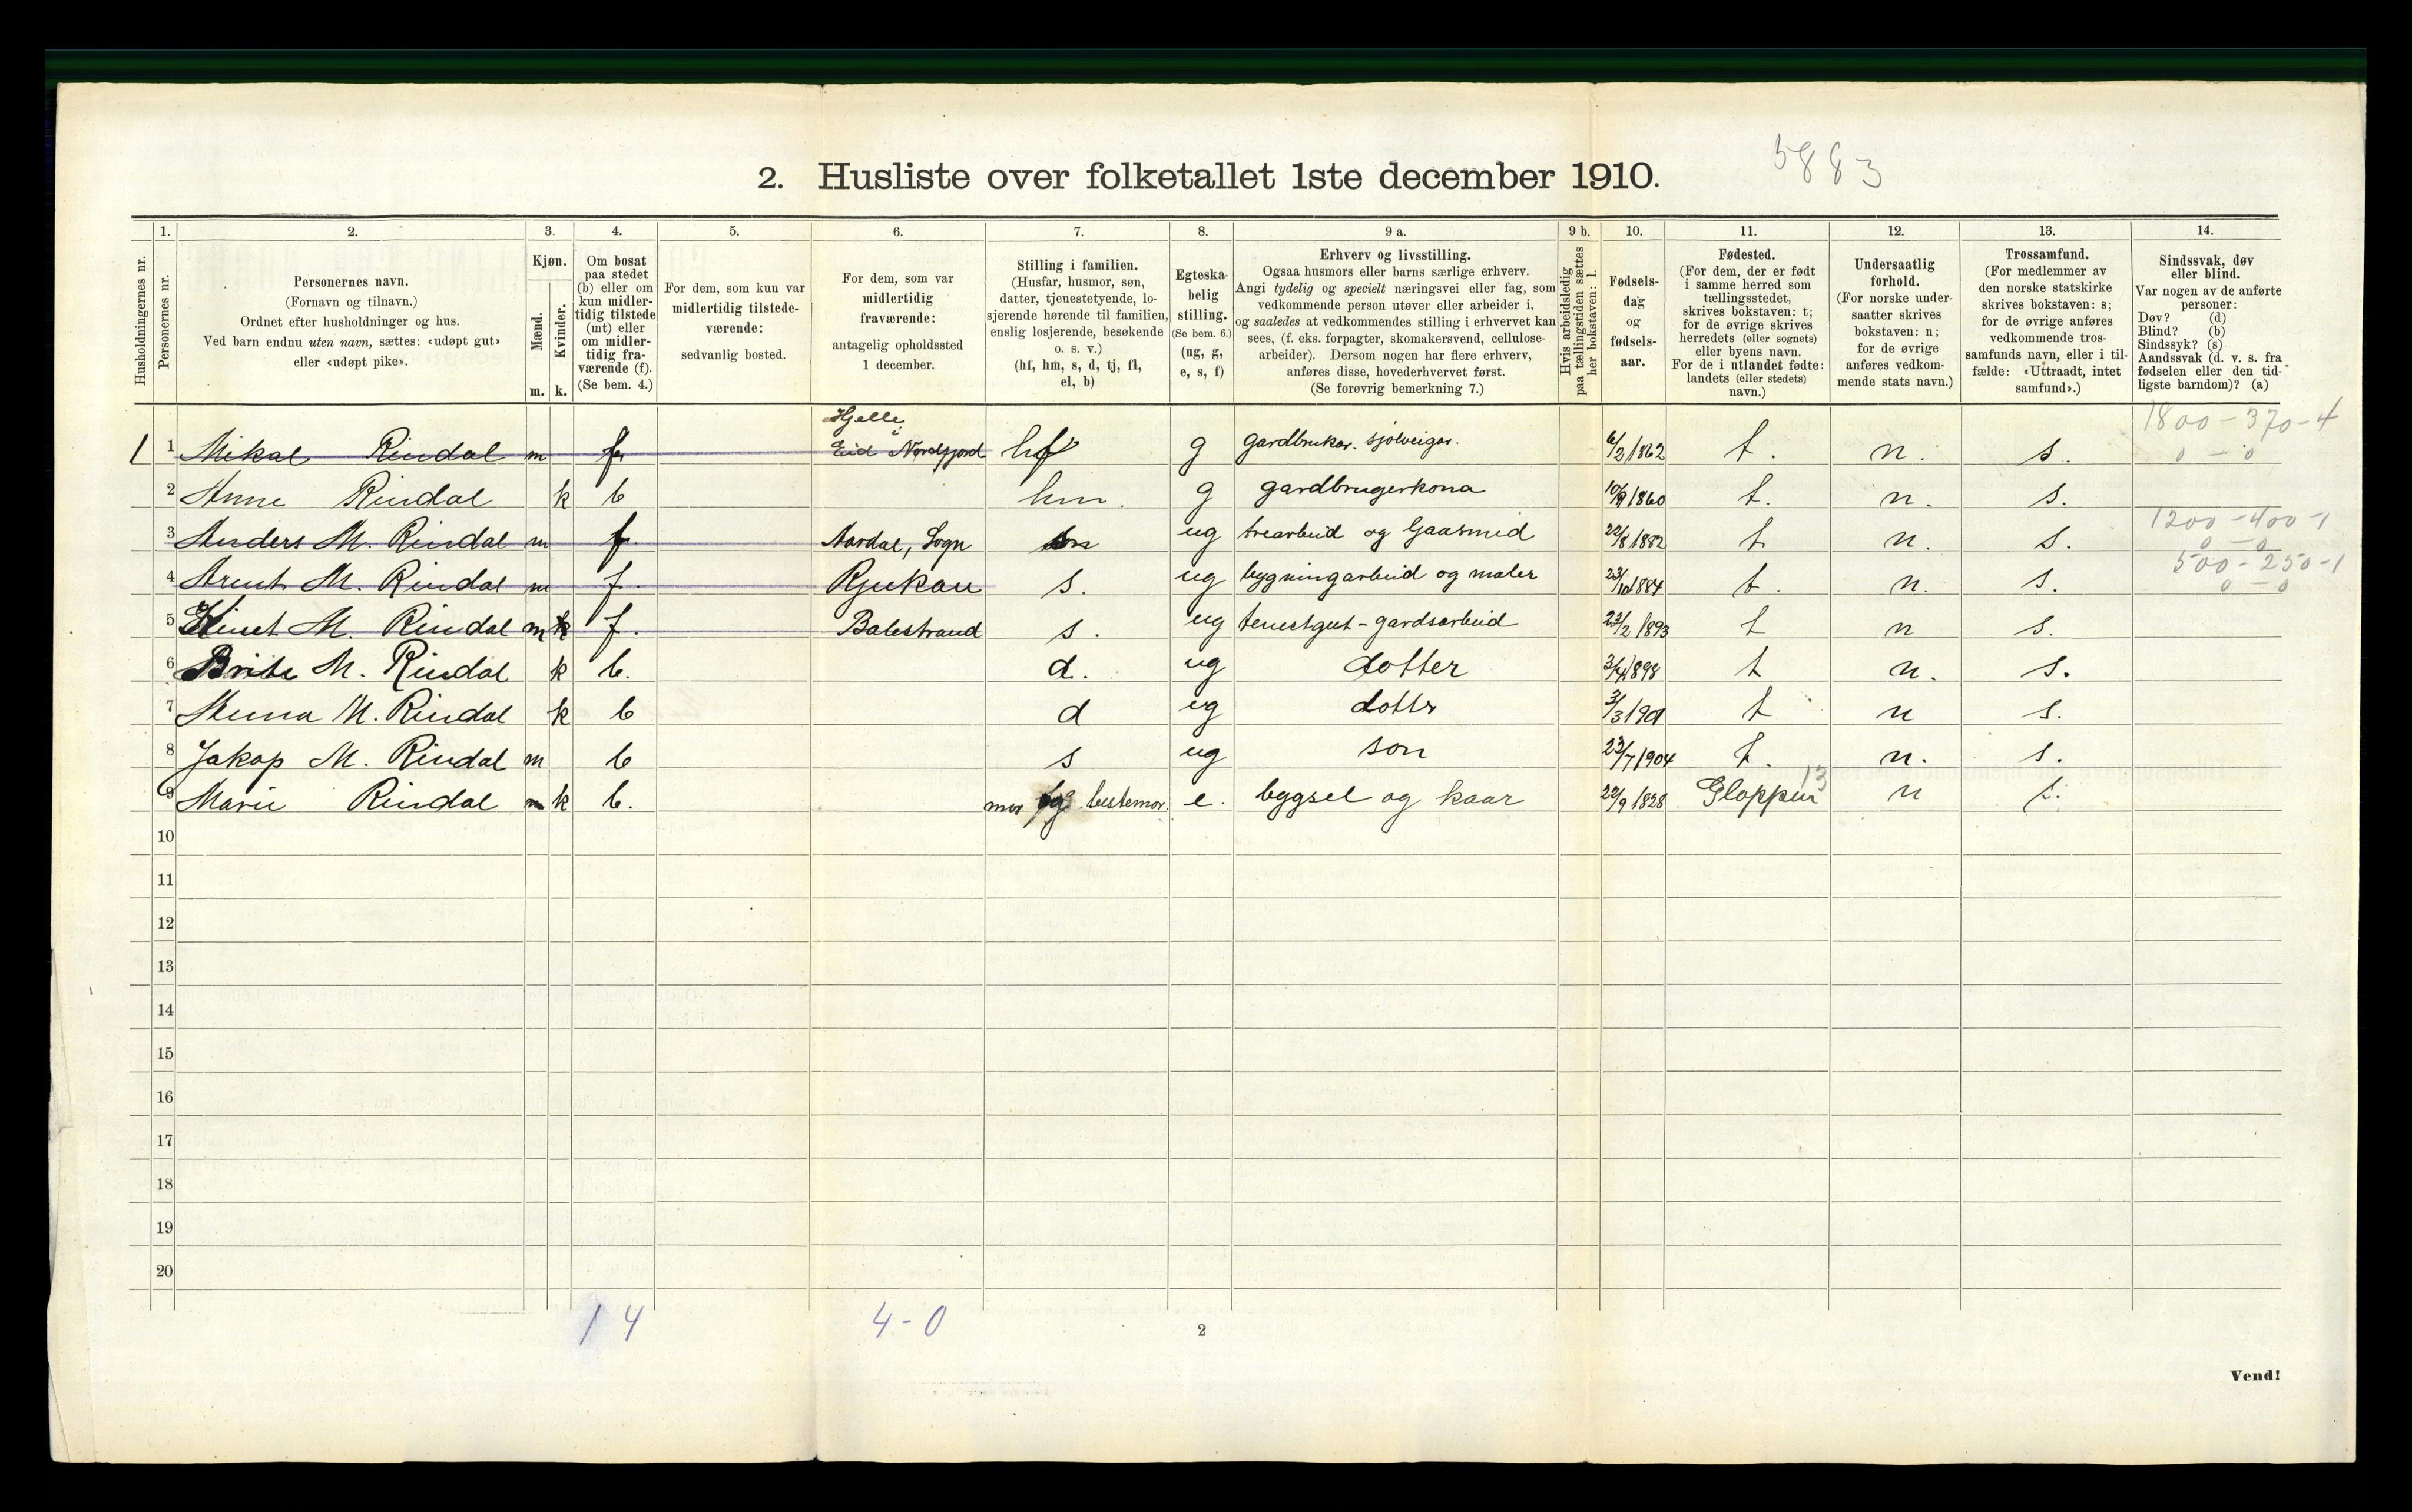 5883
2. Husliste over folketallet 1ste december 1910.
Husholdningernes nr.
1.
Personernes nr.
2.
Personernes navn.
(Fornavn og tilnavn.)
Ordnet efter husholdninger og hus.
Ved barn endnu uten navn, sættes: «udøpt gut»
eller «udøpt pike».
3.
Kjøn.
Mænd.
Kvinder.
m. k.
4.
Om bosat
paa stedet
(b) eller om
kun midler-
tidig tilstede
(mt) eller
om midler-
tidig fra-
værende (f).
(Se bem. 4.)
5.
For dem, som kun var
midlertidig tilstede-
værende:
sedvanlig bosted.
6.
For dem, som var
midlertidig
fraværende:
antagelig opholdssted
1 december.
7.
Stilling i familien.
(Husfar, husmor, søn,
datter, tjenestetyende, lo-
sjerende hørende til familien,
enslig losjerende, besøkende
o. s. v.)
(hf, hm, s, d, tj, fl,
el, b)
8.
Egteska-
belig
stilling.
(Se bem. 6.)
(ug, g,
e, s, f)
9 a.
Erhverv og livsstilling.
Ogsaa husmors eller barns særlige erhverv.
Angi tydelig og specielt næringsvei eller fag, som
vedkommende person utøver eller arbeider i,
og saaledes at vedkommendes stilling i erhvervet kan
sees, (f. eks. forpagter, skomakersvend, cellulose-
arbeider). Dersom nogen har flere erhverv,
anføres disse, hovederhvervet først.
(Se forøvrig bemerkning 7.)
9 b.
Hvis arbeidsledig
paa tællingstiden sættes
her bokstaven: l.
10.
Fødsels-
dag
og
fødsels-
aar.
11.
Fødested.
(For dem, der er født
i samme herred som
tællingsstedet,
skrives bokstaven: t;
for de øvrige skrives
herredets (eller sognets)
eller byens navn.
For de i utlandet fødte:
landets (eller stedets)
navn.)
12.
Undersaatlig
forhold.
(For norske under-
saatter skrives
bokstaven: n;
for de øvrige
anføres vedkom-
mende stats navn.)
13.
Trossamfund.
(For medlemmer av
den norske statskirke
skrives bokstaven: s;
for de øvrige anføres
vedkommende tros-
samfunds navn, eller i til-
fælde: «Uttraadt, intet
samfund».)
14.
Sindssvak, døv
eller blind.
Var nogen av de anførte
personer:
Døv? (d)
Blind? (b)
Sindssyk? (s)
Aandssvak (d. v. s. fra
fødselen eller den tid-
ligste barndom)? (a)
Hjelle i 1800-370-4
1 1 Mikal Rindal m f. Eid Nordfjord hf g gardbrukar. sjølveigar. 6/2 1862 t. n. s. 0-0
2 Anne Rindal k b hm. g gardbrugerkona 10/9 1860 t. n. s.
1200-400-1
3 Anders M. Rindal m f Aardal, Sogn ug trearbeid og 22/8 1882 t n. s. 0-0
500-250-1
4 Arent M. Rindal m f. Rjukan s. ug bygningarbeid og maler 1884 t. n. s. 0-0
5 M. Rindal m f. Balestrand s. ug tenestgut-gardsarbeid 23/2 1893 t n s.
6 Brite M. Rindal k b. d. ug dotter 3/4 1898 t n. s.
7 M. Rindal k b d ug dotter 3/3 190 t n s.
8 Jakop M. Rindal m b s ug son 23/7 1904 t. n. s.
13
9 Marie Rindal k b. mor og bestemor. e. bygsel og kaar 22/9 1828 Gloppen n s.
10
11
12
13
14
15
16
17
18
19
20
1 4 4-0
2
Vend!